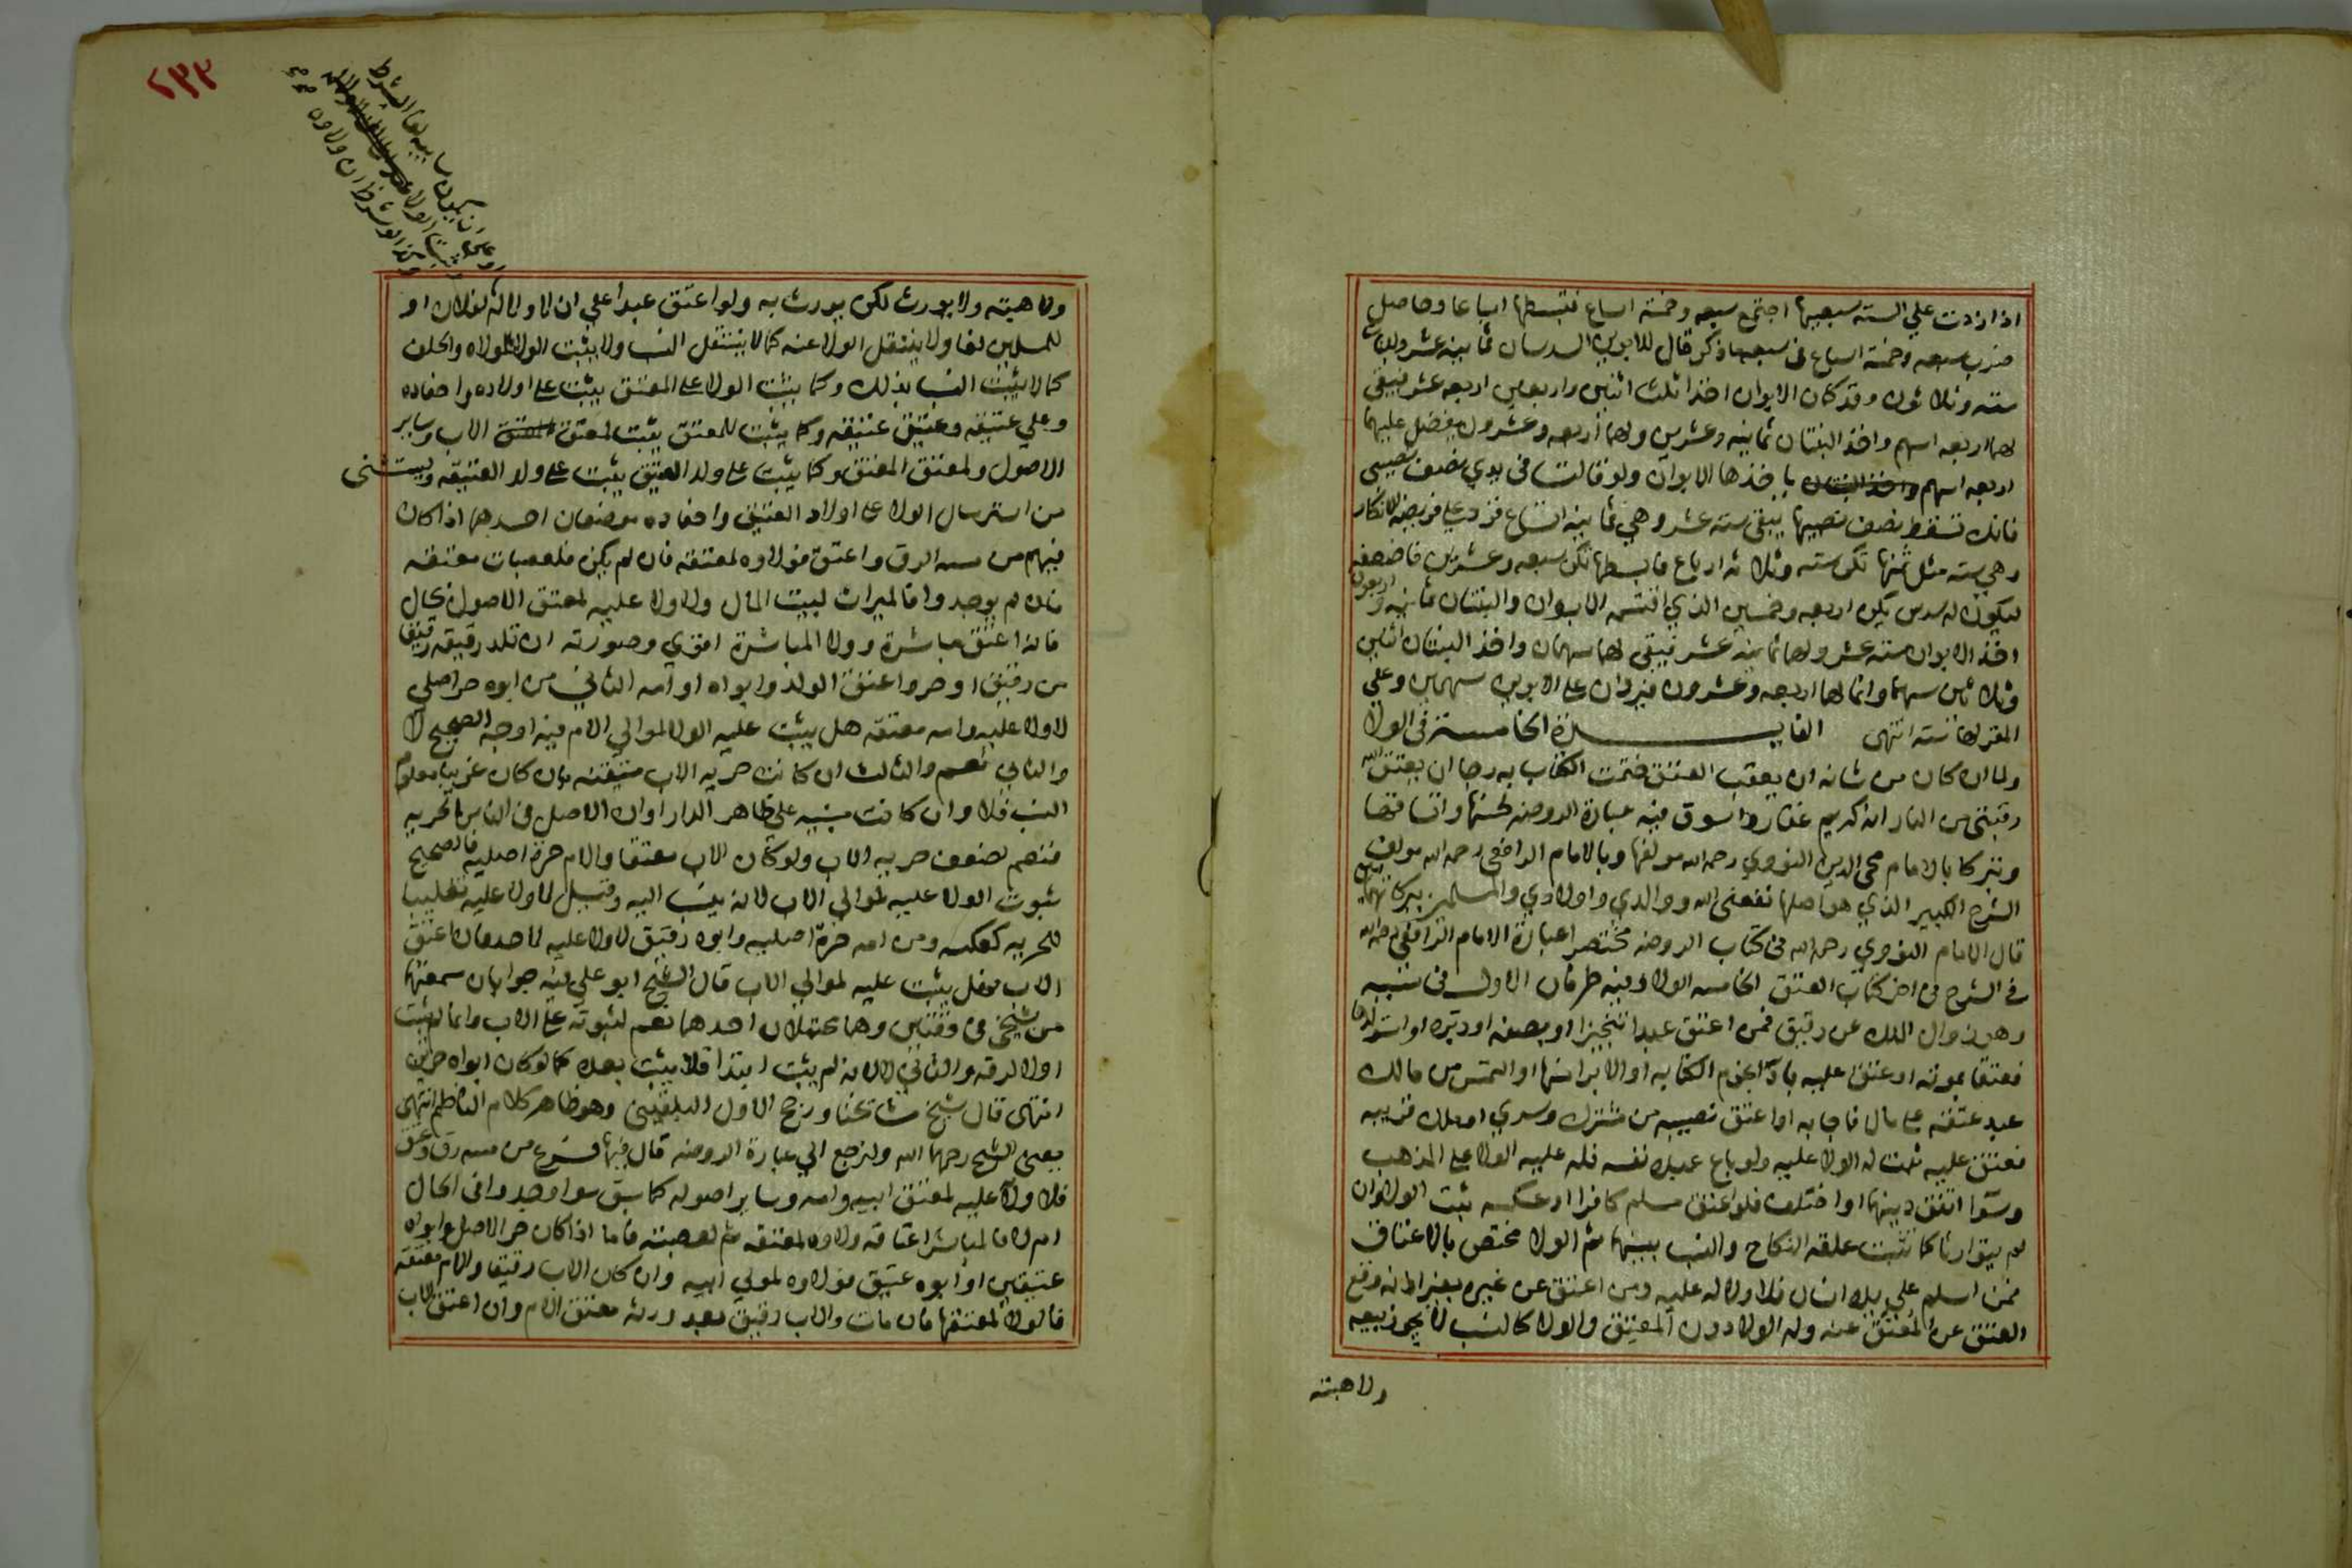 اذا زدت علي السته سبعيها اجتمع سبعه وخمسة اسباع فتبسطها اسباعا وحاصل
ضرب سبعه وخمسة اسباع في سبعه ماذكر قال للابوين السدسان ثمانية عشر وللبنات
سته وثلاثون وقد كان الابوان اخذا ثلث اثنين واربعين اربعه عشر فيبقي
لهما اربعه اسهم واخذ البنتان ثمانيه وعشرين ولهما اربعه وعشرون يفضل عليهما
اربعه اسهم ياخذها الابوان ولو قالت في يدي نصف نصيبي
فانك تسقط نصف نصيبها يبقي سته عشر وهي ثمانية اتساع فزد علي فريضة الانكار
وهي سته مثل ثمنها تكن سته وثلاثه ارباع فابسطها تكن سبعه وعشرين فاضعفه
ليكون له سدس يكن اربعه وخمسين الذي اقتسم الابوان والبنتان ثمانيه واربعون
اخذ الابوان سته عشر ولهما ثمانية عشر فيبقي لهما سهمان واخذ البنتان اثنين
وثلاثين سهما وانما لهما اربعه وعشرون فيردان علي الابوين سهمين وعلي
المقر لها سته انتهي الفايدة الخامسة في الولا
ولما ان كان من شانه ان يعقب العتق ختمت الكتاب به رجا ان يعتق الله
رقبتي من النار انه كريم غفار واسوق فيه عبارة الروضه لحسنها واتساقها
وتبركا بالامام محي الدين النووي رحمه الله مولفها وبالامام الرافعي رحمه الله مولف
الشرح الكبير الذي هو اصلها نفعني الله ووالدي واولادي والمسلمين ببركاتهما
قال الامام النووي رحمه الله في كتاب الروضه مختصرا عبارة الامام الرافعي رحمه الله
في الشرح في اخر كتاب العتق الخامسه الولا وفيه طرفان الاول في سببه
وهو زوال الملك عن رقيق فمن اعتق عبدا تنجيزا او بصفه او دبره او استولدها
فعتقا بموته او عتق عليه باداء نجوم الكتابه او الابراء منها او التمس من مالك
عبد عتقه علي مال فاجابه او اعتق نصيبه من مشترك وسري او ملك قريبه
فعتق عليه ثبت له الولا عليه ولو باع عبده نفسه فله عليه الولا علي المذهب
وسوا اتفق دينهما او اختلف فلو اعتق مسلم كافرا او عكسه ثبت الولا وان
لم يتوارثا كما تثبت علقه النكاح والنسب بينهما ثم الولا مختص بالاعتاق
فمن اسلم علي يده انسان فلا ولا له عليه ومن اعتق عن غيره بغير اذنه وقع
العتق عن المعتق عنه وله الولا دون المعتق والولا كالنسب لا يجوز بيعه
ولا هبته
٢٣٣
وعلي ان يكون سايبه لغا الشرط
وثبت الولا
وكذا لو شرط ان ولاوه
ولا هبته ولا يورث لكن يورث به ولو اعتق عبدا علي ان لا ولا له لفلان او
للمسلمين لغا ولا ينتقل الولا عنه كما لا ينتقل النسب ولا يثبت الولا بالموالاه والحلف
كما لا يثبت النسب بذلك وكما يثبت الولا علي المعتق يثبت علي اولاده واحفاده
وعلي عتيقه وعتيق عتيقه وكما يثبت للمعتق يثبت لمعتق الاب وساير
الاصول ولمعتق المعتق وكما يثبت علي ولد العتيق يثبت علي ولد العتيقه ويستثني
من استرسال الولا علي اولاد العتيق واحفاده موضعان احدهما اذا كان
فيهم من مسه الرق واعتق فولاوه لمعتقه فان لم يكن فلعصبات معتقه
فان لم يوجدوا فالميراث لبيت المال ولا ولا عليه لمعتق الاصول بحال
فانه اعتق مباشرة وولا المباشرة اقوي وصورته ان تلد رقيقه رقيقا
من رقيق او حر واعتق الولد وابواه او امه الثاني من ابوه حر اصلي
لا ولا عليه وامه معتقه هل يثبت عليه الولا لموالي الام فيه اوجه الصحيح لا
والثاني نعم والثالث ان كانت حريه الاب متيقنه بان كان عربيا معلوم
النسب فلا وان كانت مبنيه علي ظاهر الدار او ان الاصل في الناس الحريه
فنعم لضعف حريه الاب ولو كان الاب معتقا والام حرة اصليه فالصحيح
ثبوت الولا عليه لموالي الاب لانه ينسب اليه وقيل لا ولا عليه تغليبا
للحريه كعكسه ومن امه حرة اصليه وابوه رقيق لا ولا عليه لاحد فان اعتق
الاب فهل يثبت عليه لموالي الاب قال الشيخ ابو علي فيه جوابان سمعتهما
من شيخي في وقتين وهما محتملان احدهما نعم لثبوته علي الاب وانما لم يثبت
اولا لرقه والثاني لا لانه لم يثبت ابتدا فلا يثبت بعده كما لو كان ابواه حرين
انتهي قال شيخ مشايخنا ورجح الاول البلقيني وهو ظاهر كلام الناظم انتهي
يعني الشرح رحمهما الله ولنرجع الي عبارة الروضه قال فيها فرع من مسه رق وعتق
فلا ولاء عليه لمعتق ابيه وامه وساير اصوله كما سبق سوا وجدوا في الحال
ام لا فالمباشر اعتاقه ولاوه لمعتقه ثم لعصبته فاما اذا كان حر الاصل وابواه
عتيقين او ابوه عتيق فولاوه لمولي ابيه وان كان الاب رقيقا والام معتقه
فالولا لمعتقها فان مات والاب رقيق بعد ورثه معتق الام وان اعتق الاب